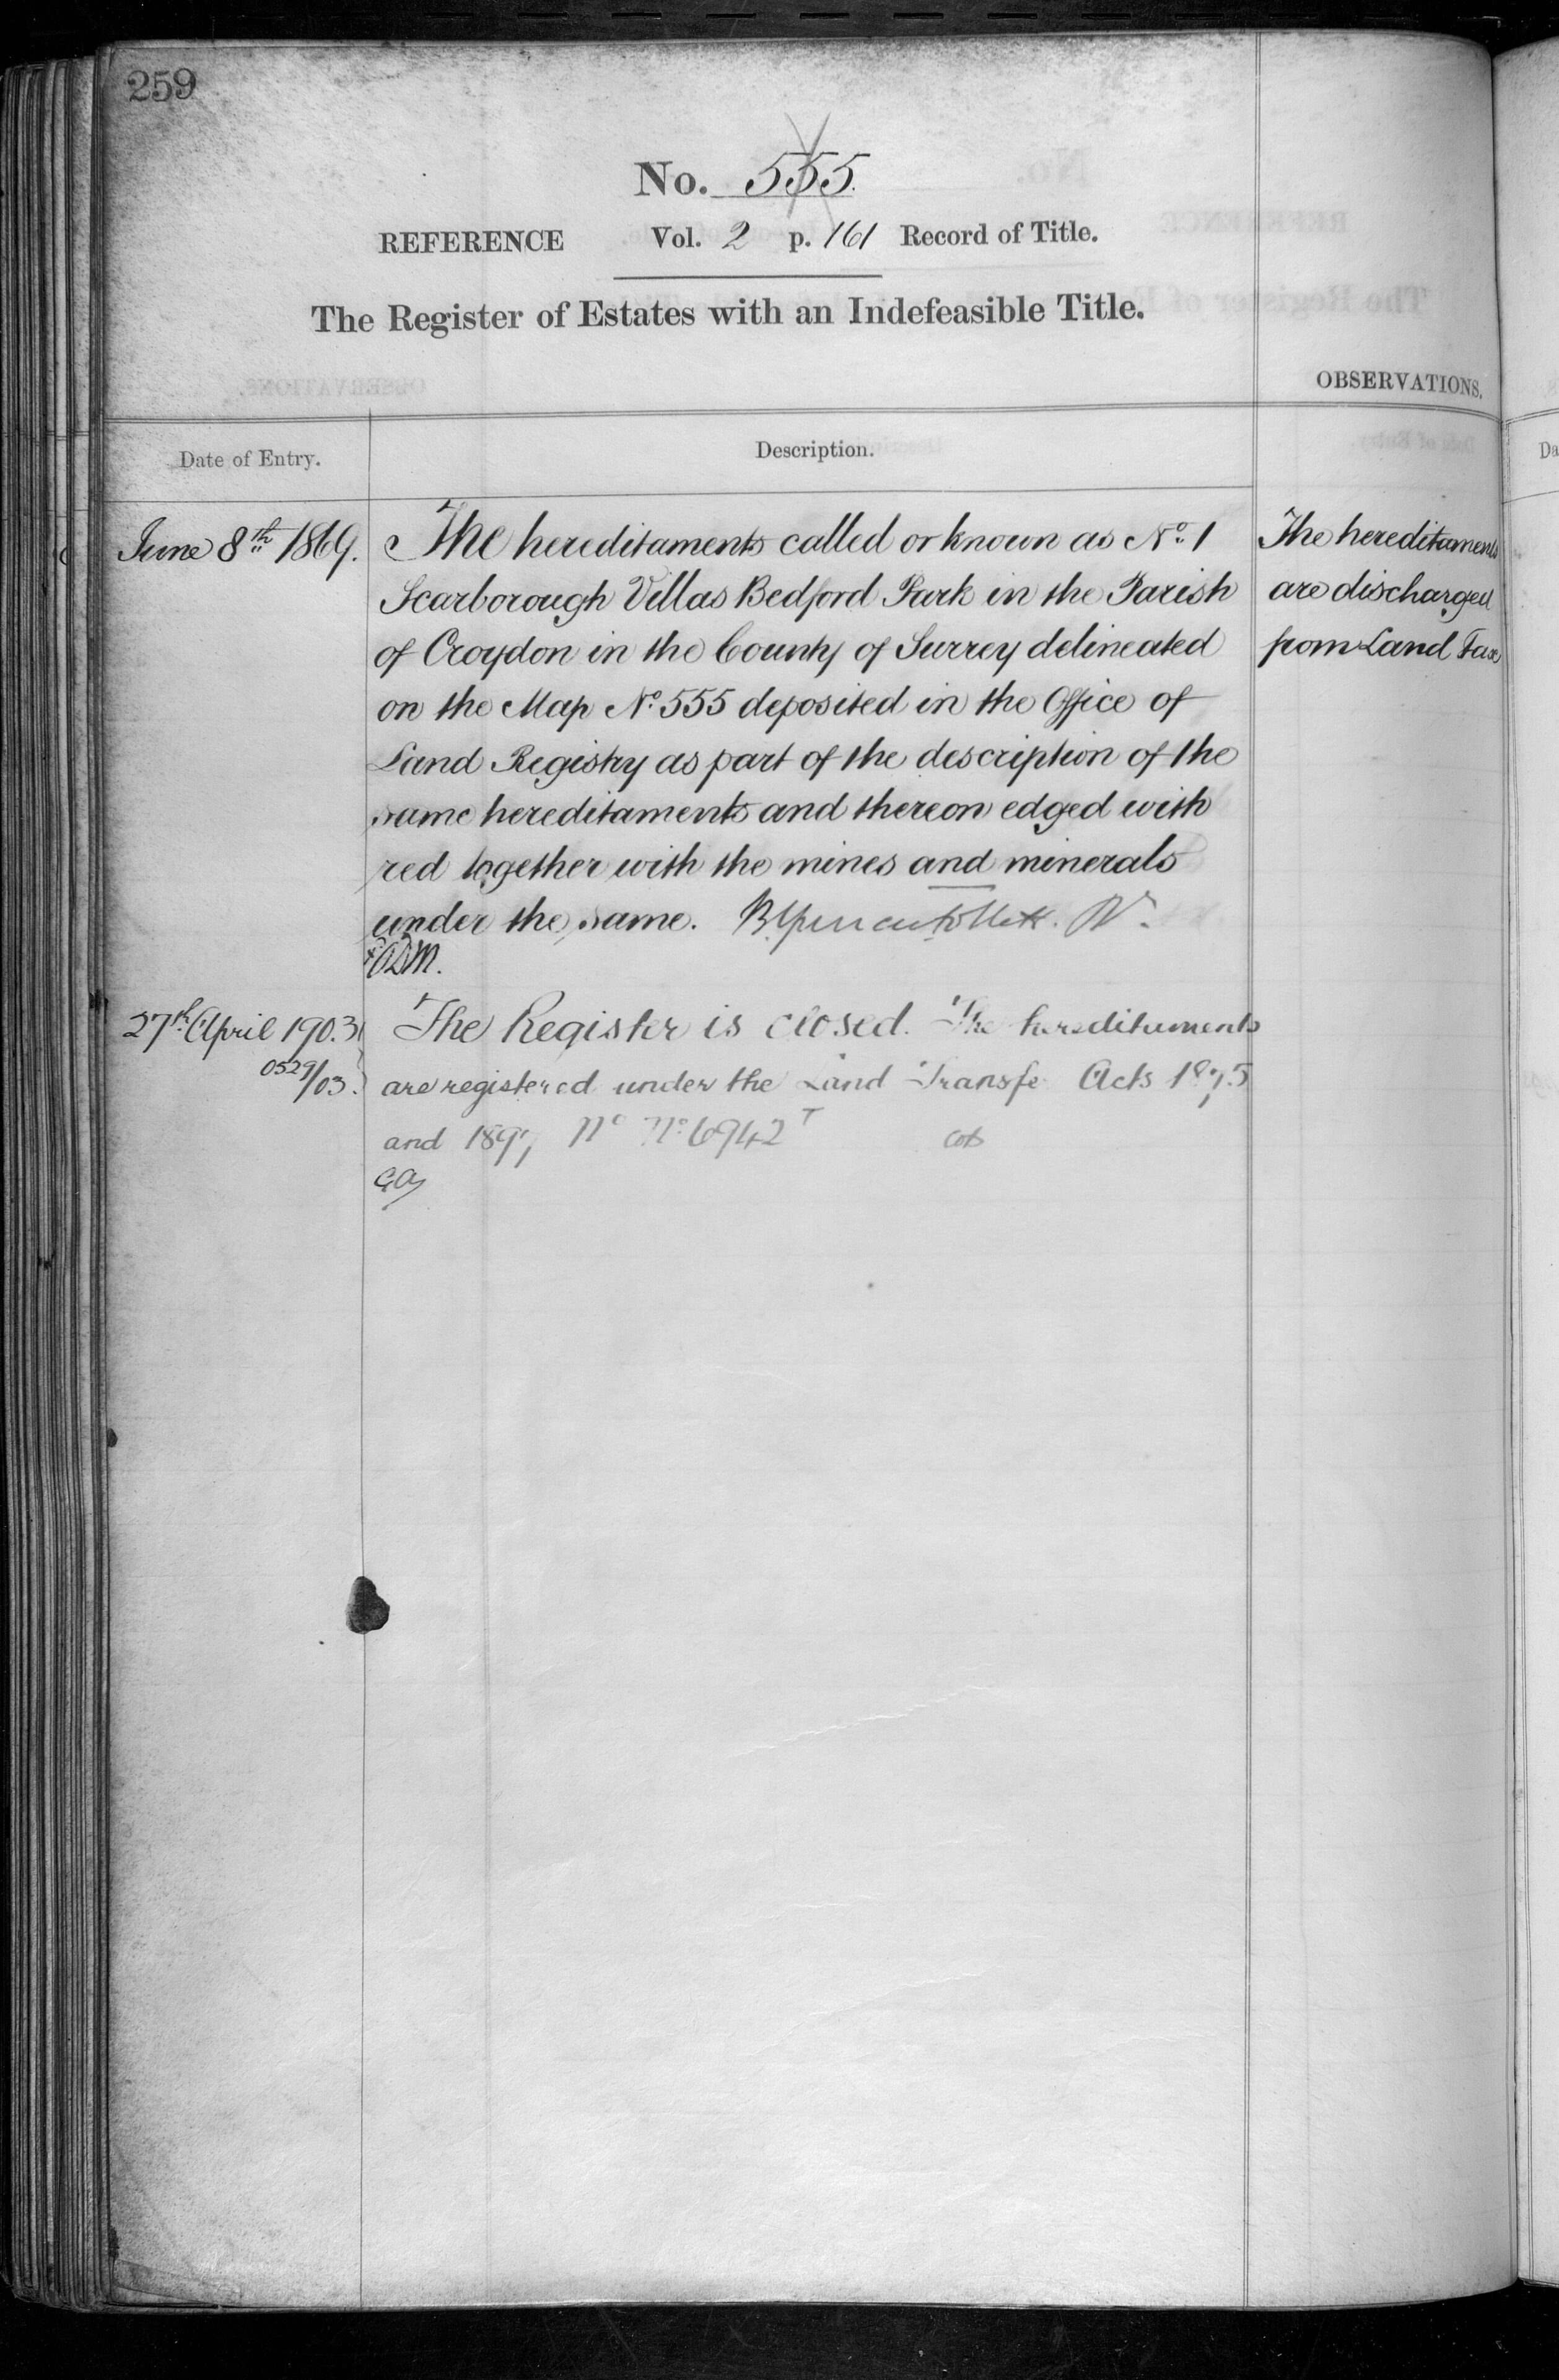 259
No. 555.
REFERENCE Vol. 2 p. 161 Record of Title.
The Register of Estates with an Indefeasible Title.
OBSERVATIONS.
Date of Entry.
Description.
June 8th 1869.
The hereditaments called or known as No. 1
Scarborough Villas Bedford Park in the Parish
of Croydon in the County of Surrey delineated
on the Map No. 555 deposited in the Office of
Land Registry as part of the description of the
same hereditaments and thereon edged with
red together with the mines and minerals
under the same.
The hereditaments
are discharged
from Land Tax
27th April 1903
0529/03.
The Register is closed. The hereditaments
are registered under the Land Transfe Acts 1875
and 1897 No 6942